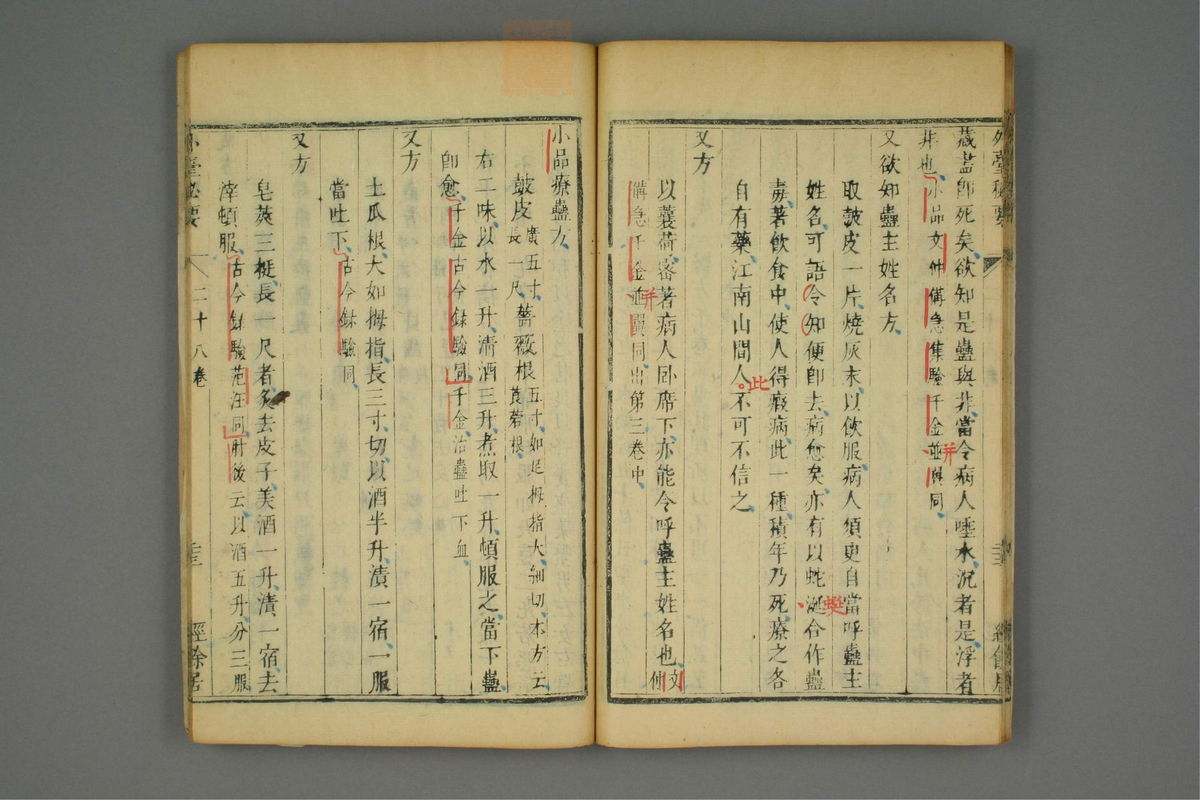 外臺秘要
葴盡即死矣欲知是蠱與非當令病人唾水沉者是浮者
非也小品文仲備急集驗千金並與同
并
又欲知蠱主姓名方
取鼓皮一片燒灰末以飲服病人須臾自當呼蠱主
姓名可語令知便即去病愈矣亦有以蛇涎合作蠱
毒著飲食中使人得瘕病此一種積年乃死療之各
自有藥江南山間人不可不信之
此
又方
以蘘荷密著病人臥席下亦能令呼蠱主姓名也文仲
備急千金並翼同出第三卷中
并
小品療蠱方
鼓皮廣五寸長一尺薔薇根五寸如足拇指大細切本方云莨蓎根
右二味以水一升清酒三升煮取一升頓服之當下蠱
即愈千金古今錄驗同千金治蠱吐下血
又方
土瓜根大如拇指長三寸切以酒半升漬一宿一服
當吐下古今錄驗同
又方
皂莢三梃長一尺者炙去皮子美酒一升漬一宿去
滓頓服古今錄驗范汪同肘後云以酒五升分三服
外臺秘要
二十八卷
經餘居